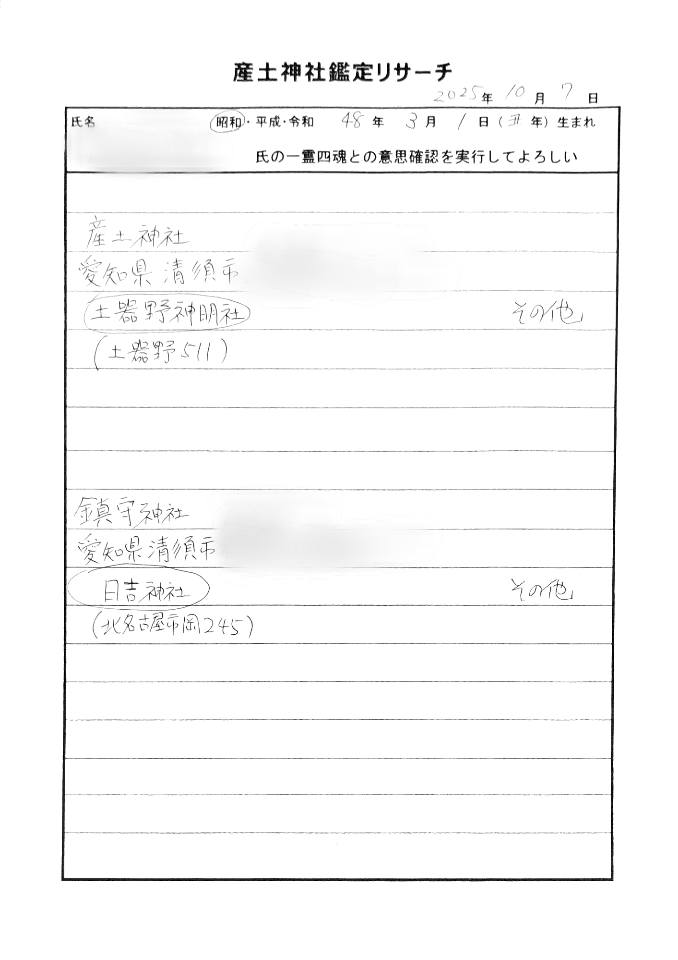 産土神社鑑定リサーチ
2025年 10月 7日
氏名 昭和・平成・令和 48年 3月 1日（丑年）生まれ
氏の一霊四魂との意思確認を実行してよろしい
産土神社
愛知県清須市
土器野神明社 その他
(土器野511)
鎮守神社
愛知県清須市
日吉神社 その他
(北名古屋市岡245)